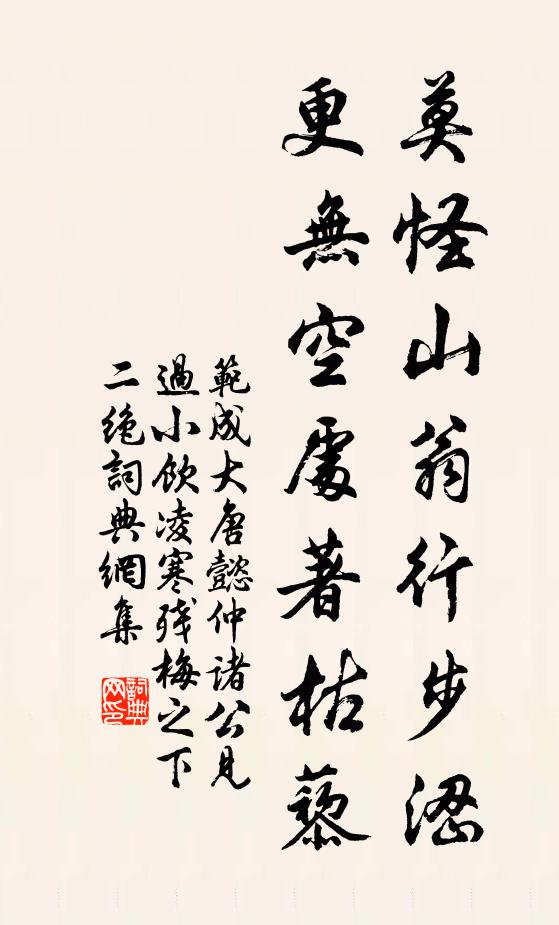 莫怪山翁行步澀
更無空處著枯藜
範成大唐懿仲諸公見
過小飲凌寒殘梅之下
二絕詞典網集
詞典
网印